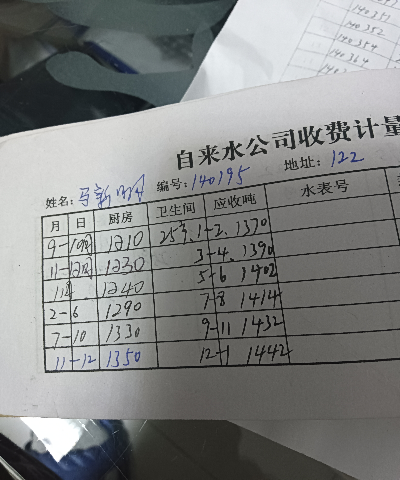 140351
140352
140354
140364
自来水公司收费计量
姓名: 马新明 编号: 140195 地址: 122
月 日 厨房 卫生间 应收吨 水表号
9-10 1210 25号.1-2.1370
11-12 1230 3-4.1390
1 1240 5-6 1402
2-6 1290 7-8 1414
7-10 1330 9-11 1432
11-12 1350 12-1 1442